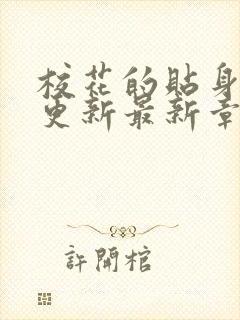 校花的貼身
更新最新章
許開棺